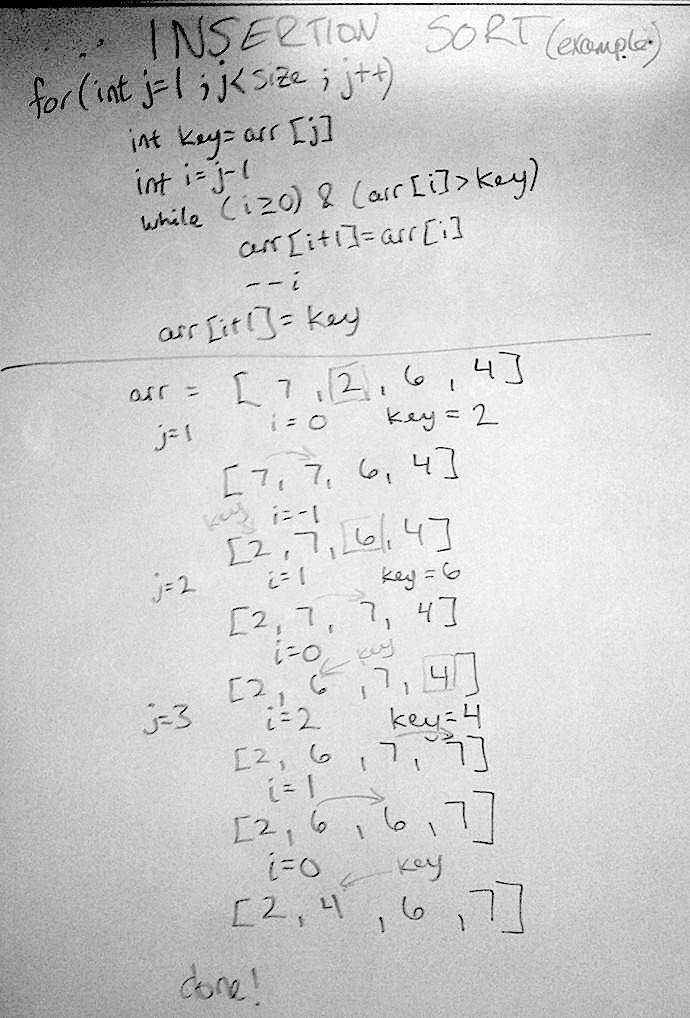 INSERTION SORT (example)
for(int j=1 ; j<size ; j++)
int key=arr [j]
int i=j-1
while (i≥0) & (arr[i]>key)
arr[i+1]=arr[i]
--i
arr[i+1]=key
arr = [7, 2, 6, 4]
j=1 i=0 key=2
[7, 7, 6, 4]
key i=-1
[2, 7, 6, 4]
j=2 i=1 key=6
[2, 7, 7, 4]
i=0 key
[2, 6, 7, 4]
j=3 i=2 key=4
[2, 6, 7, 7]
i=1
[2, 6, 6, 7]
i=0 key
[2, 4, 6, 7]
done!